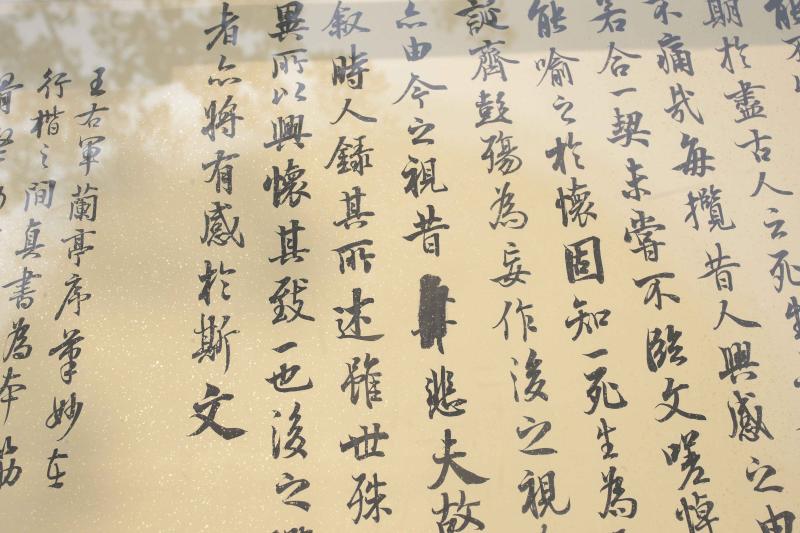 能不以
期於盡古人云死生
不痛哉每攬昔人興感之由
若合一契未嘗不臨文嗟悼
能喻之於懷固知一死生為
誕齊彭殤為妄作後之視
亦由今之視昔悲夫故
叙時人録其所述雖世殊
異所以興懷其致一也後之
者亦將有感於斯文
王右軍蘭亭序筆妙在
行楷之間真書為本筋
骨